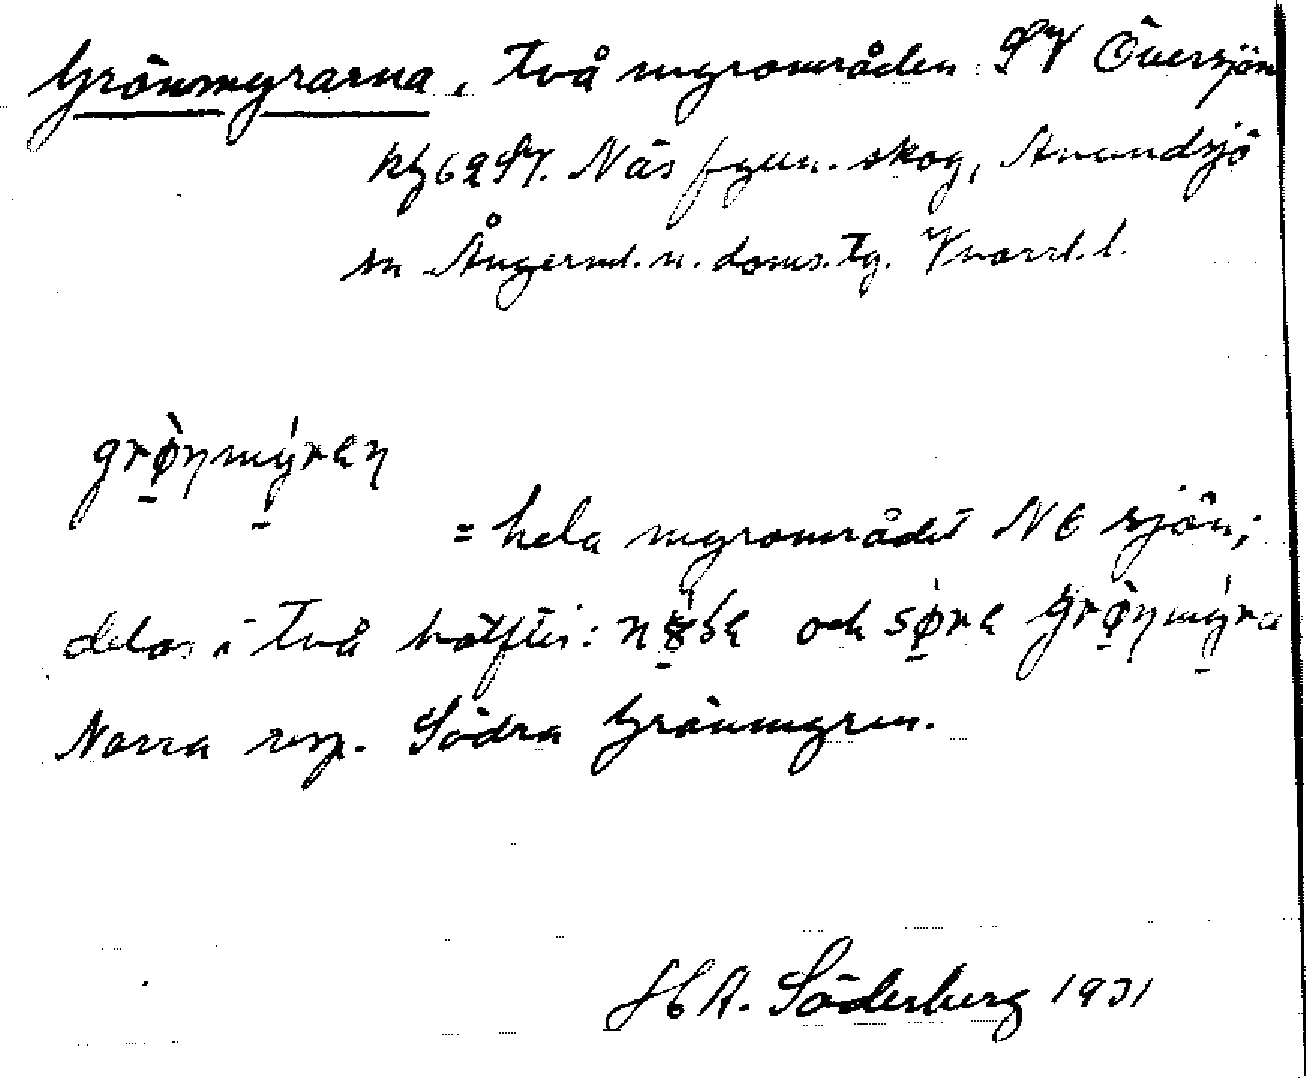 Grönmyrarna, två myrområden SV Översjön
kbl 62 ST. Näs fgem. skog, Anundsjö
sn Ångerml. n. doms. tg. Vnorrl. l.
grø̀nmýren
= hela myrområdet NE sjön;
delas i två hälfter: och søre grø̀nmýra
Norra resp. Södra Grönmyren.
H A. Söderberg 1931